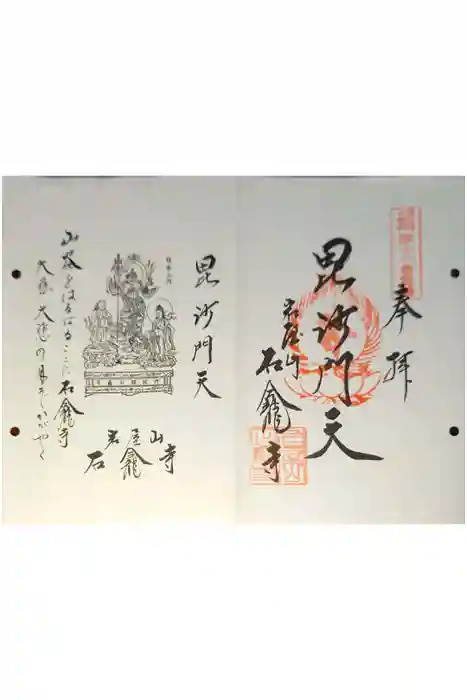 奉拝
毘沙門天
岩屋山
石龕寺
毘沙門天
岩屋山
石龕寺
をはるばるここに石龕寺
大慈大悲の月そかがやく